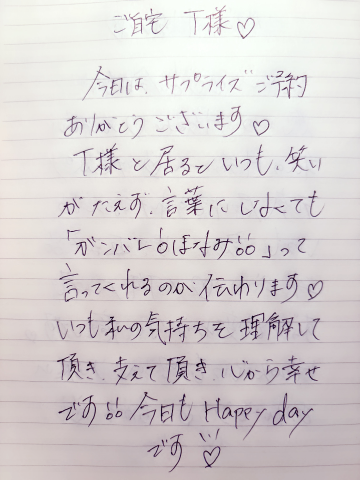 ご自宅 T様♡
今日は、サプライズご予約
ありがとうございます♡
T様と居るといつも、笑い
がたえず、言葉にしなくても
「ガンバレ!ほなみ!!」って
言ってくれるのが伝わります♡
いつも私の気持ちを理解して
頂き、支えて頂き、心から幸せ
です!!今日も Happy day
です♡